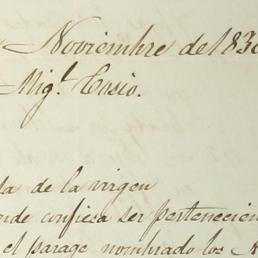 Noviembre de 183
Mig.l Cosio.
da de la virgen
onde confiesa ser pertenecien
el parage nombrado los